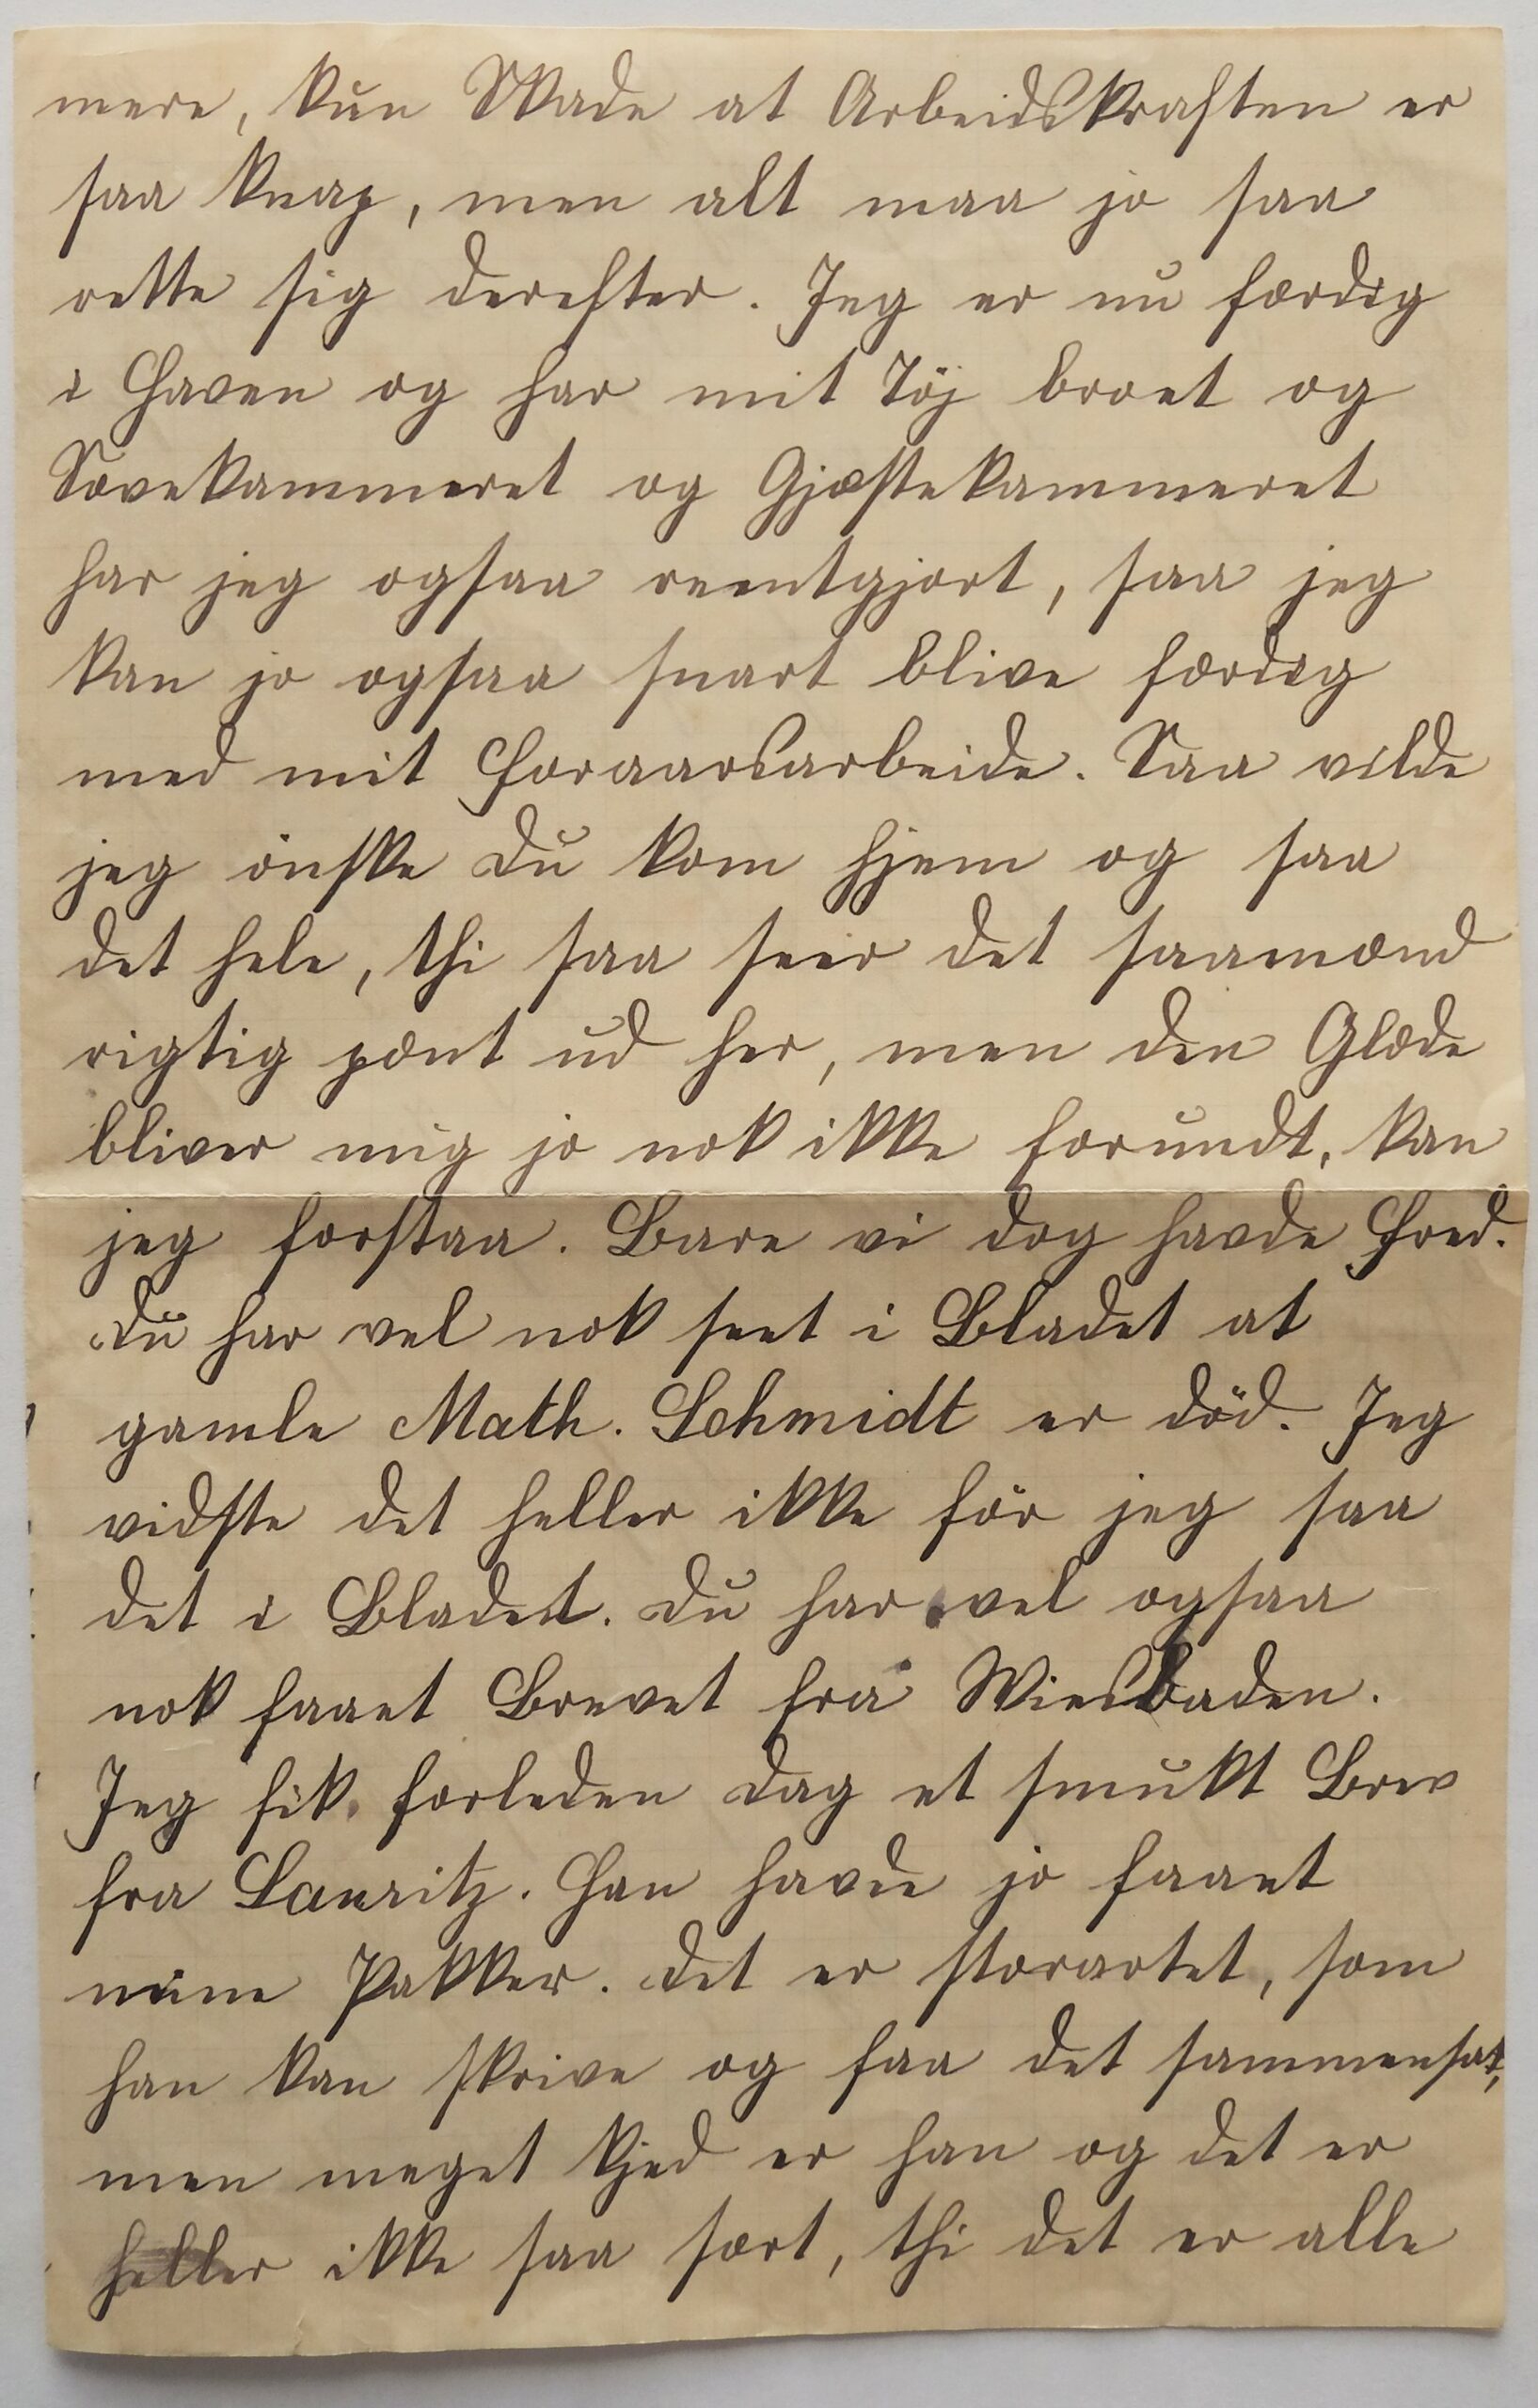 mere, kun Skade at Arbeidskraften er
saa knap, men alt maa jo saa
rette sig derefter. Jeg er nu færdig
i Haven og har mit Töj broet og
Sovekammeret og Gjæstekammeret
har jeg ogsaa reentgjort, saa jeg
kan jo ogsaa snart blive færdig
med mit Foraarsarbeide. Saa vilde
jeg önske Du kom hjem og saa
det hele, thi saa seer det saamænd
rigtig pænt ud her, men den Glæde
bliver mig jo nok ikke forundt, kan
jeg forstaa. Bare vi dog havde Fred.
Du har vel nok seet i Bladet at
gamle Math. Schmidt er död. Jeg
vidste det heller ikke för jeg saa
det i Bladet. Du har vel ogsaa
nok faaet Brevet fra Wiesbaden.
Jeg fik forleden Dag et smukt Brev
fra Lauritz. Han havde jo faaet
mine Pakker. Det er storartet, som
han kan skrive og faa det sammensat,
men meget kjed er han og det er
heller ikke saa sært, thi det er alle